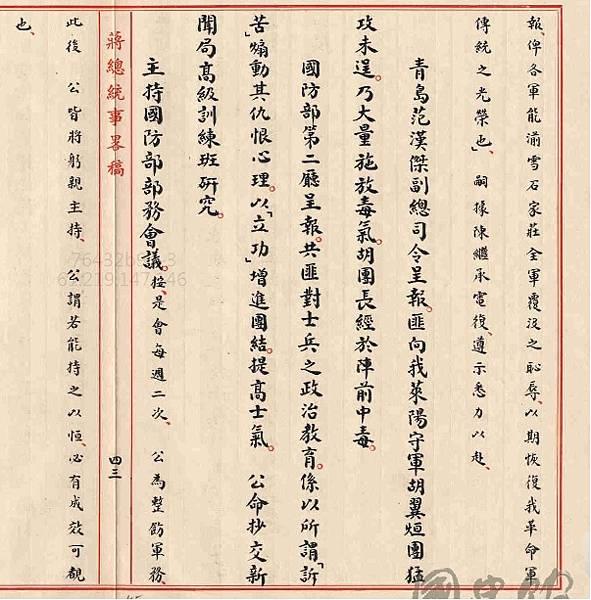 報、俾各軍能湔雪石家莊全軍覆沒之恥辱、以期恢復我革命軍
傳統之光榮也」嗣據陳繼承電復、遵示悉力以赴、
青島范漢傑副總司令呈報。匪向我萊陽守軍胡翼烜團猛
攻未逞。乃大量施放毒氣。胡團長經於陣前中毒。
國防部第二廳呈報。共匪對士兵之政治教育。係以所謂「訴
苦」煽動其仇恨心理。以「立功」增進團結。提高士氣。 公命抄交新
聞局高級訓練班研究。
主持國防部部務會議。按、是會每週二次、公為整飭軍務
蔣總統事畧稿
四三
此後 公皆將躬親主持、公謂若能持之以恒、必有成效可覩
也、